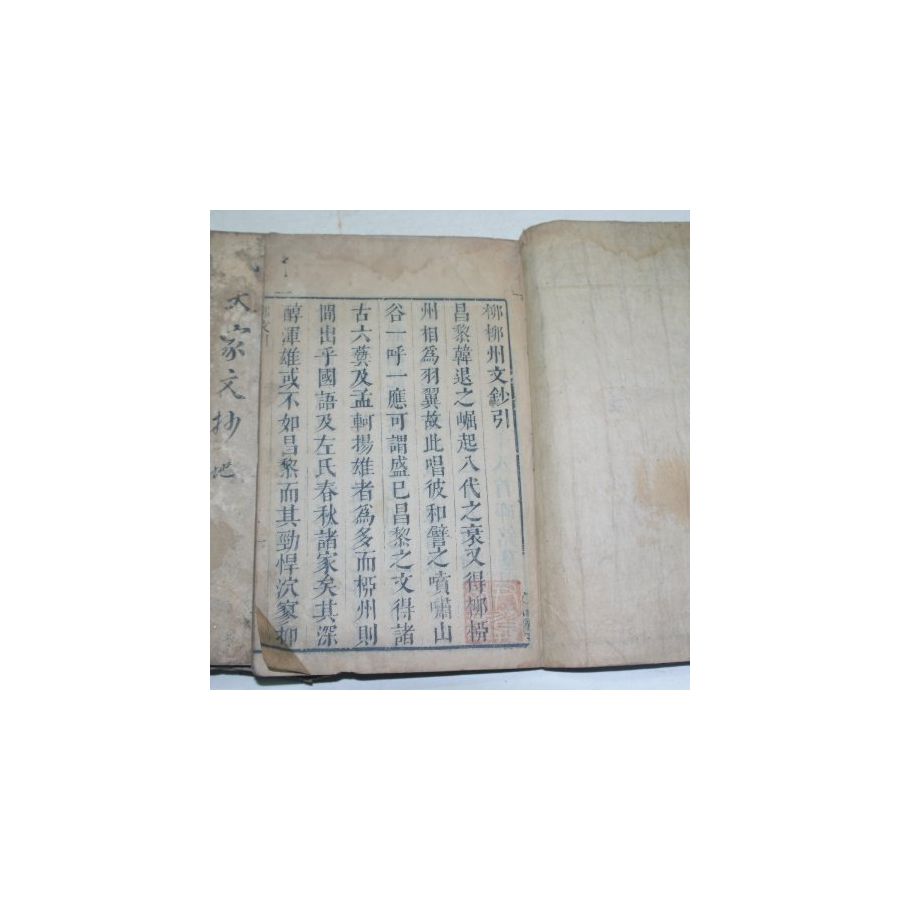 柳柳州文鈔引
昌黎韓退之崛起八代之衰又得柳柳
州相爲羽翼故此唱彼和譬之噴嘯山
谷一呼一應可謂盛已昌黎之文得諸
古六藝及孟軻揚雄者爲多而柳州則
間出乎國語及左氏春秋諸家矣其深
醇渾雄或不如昌黎而其勁悍泬寥抑
大家文抄 地